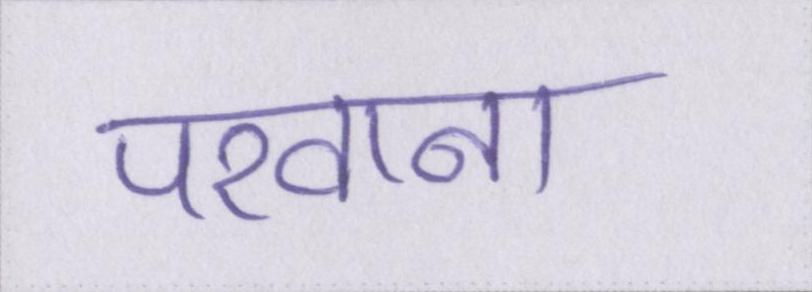 परवाना